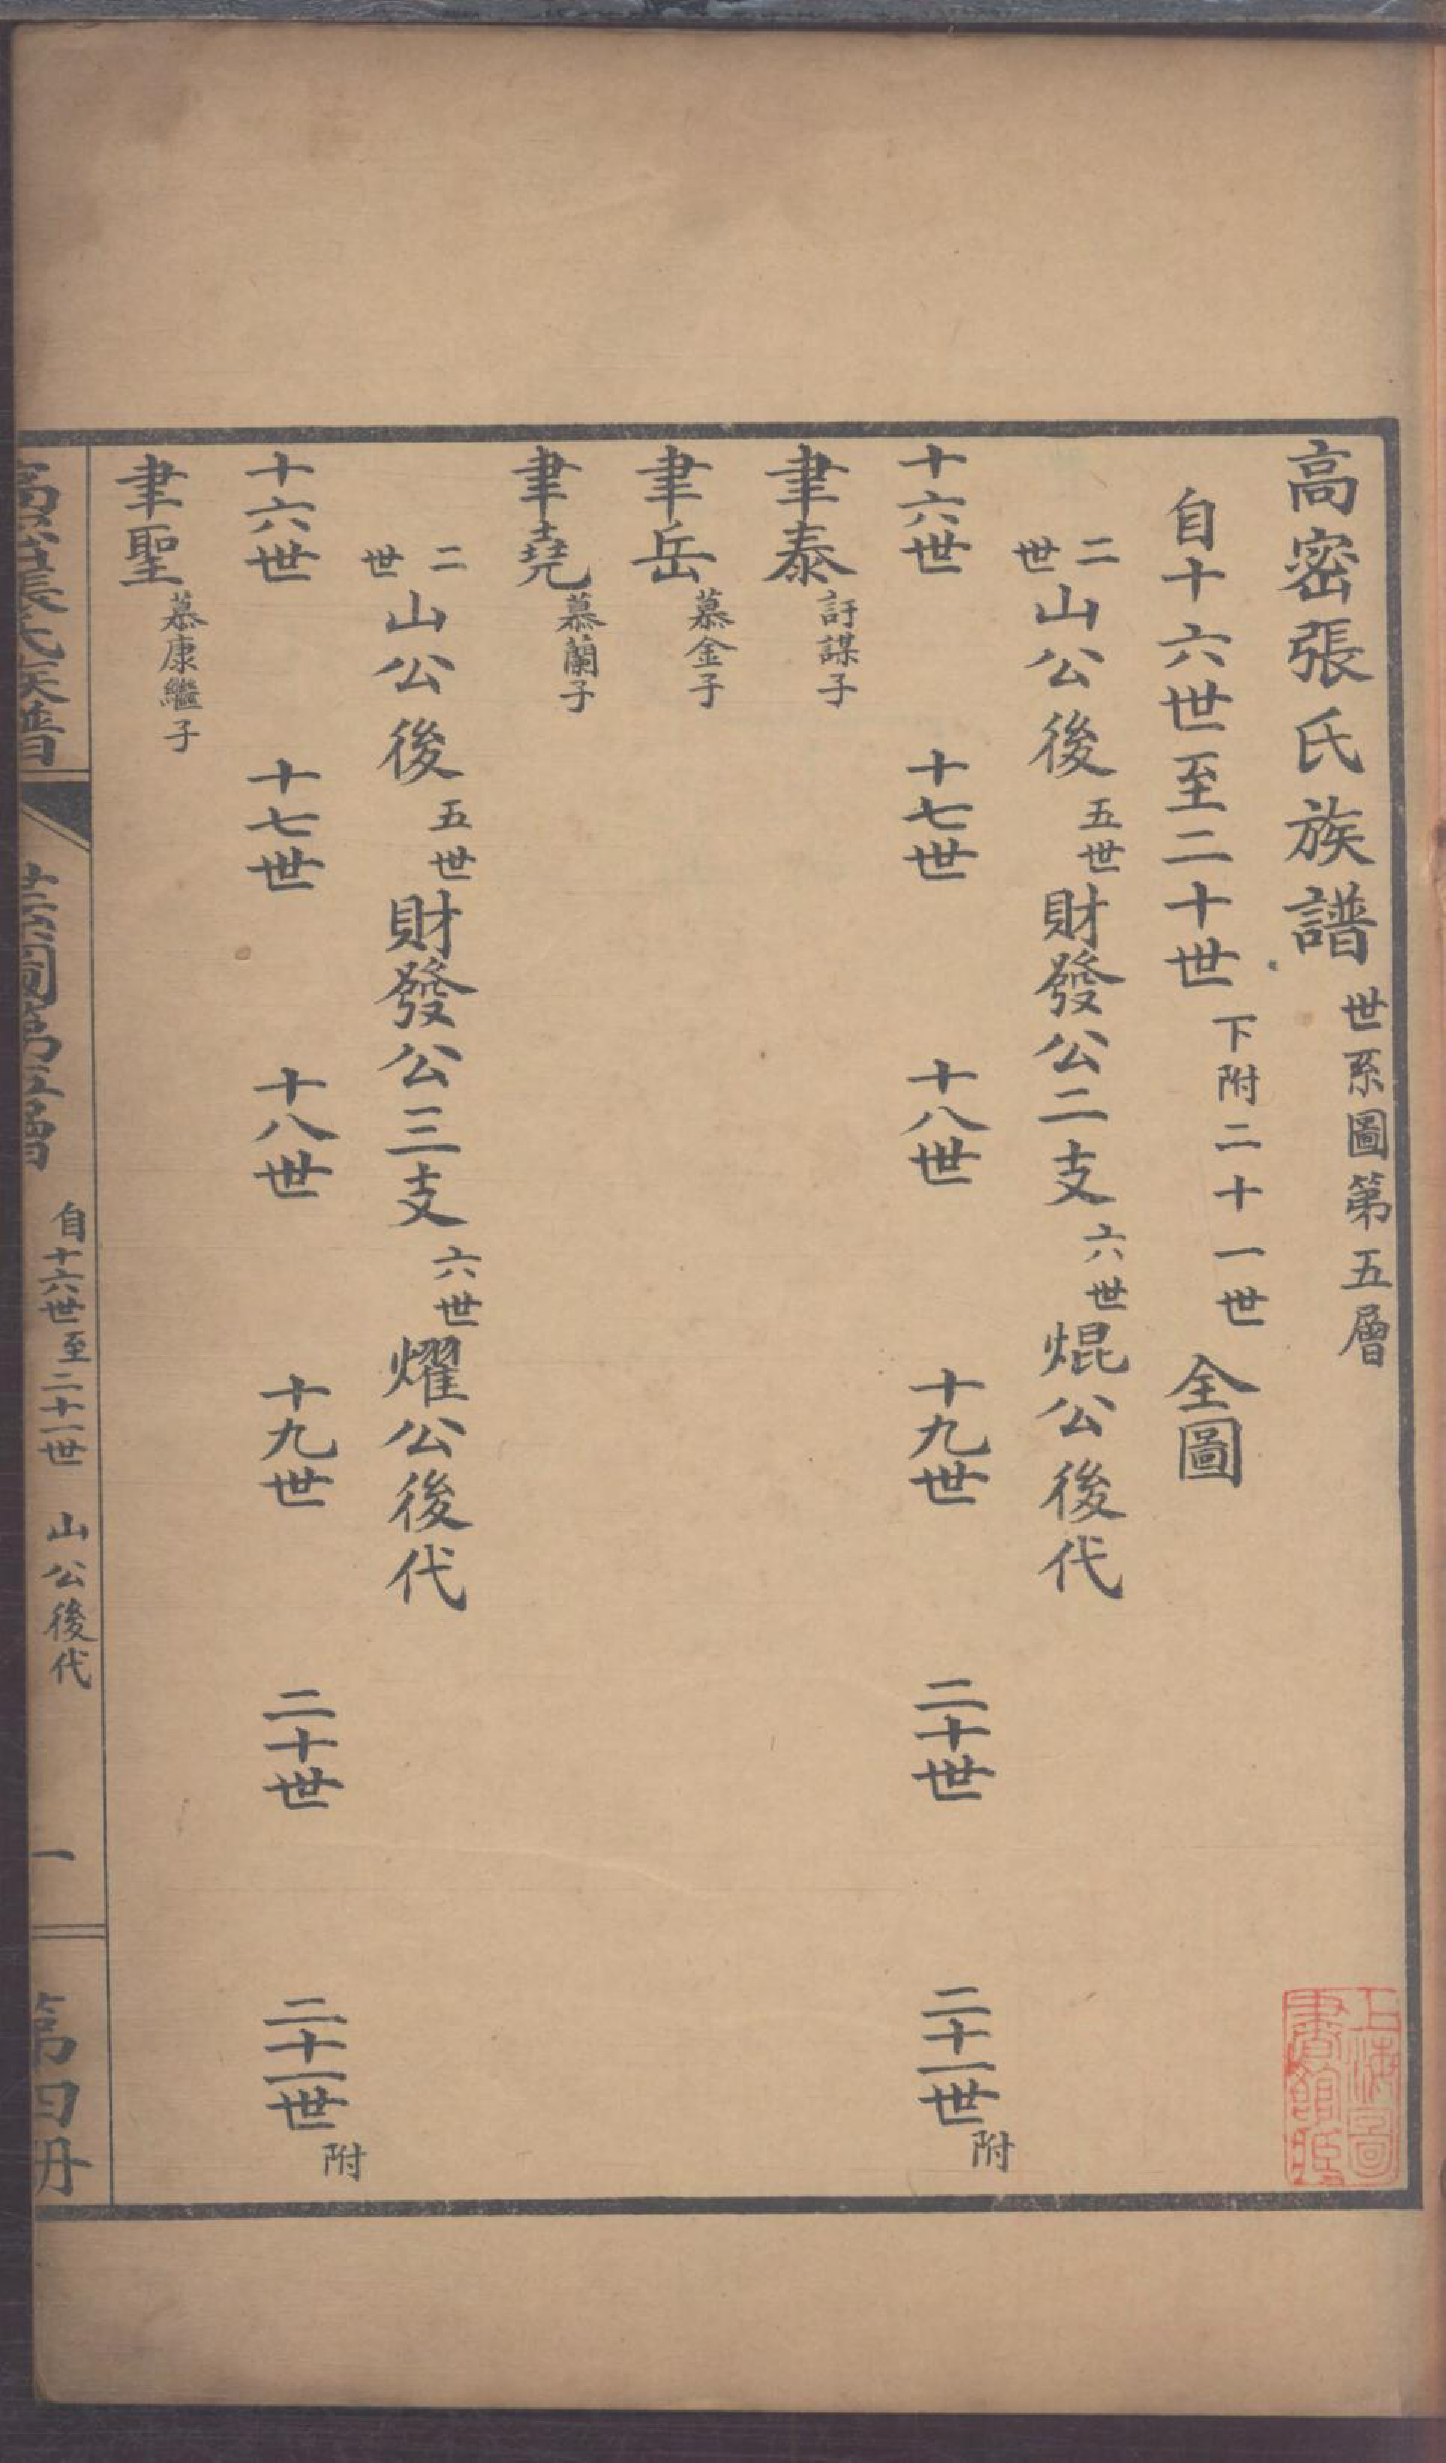 高密張氏族譜 世系圖第五層
自十六世至二十世 下附二十一世 全圖
二世 山公後 五世 財發公二支 六世 焜公後代
十六世 十七世 十八世 十九世 二十世 二十一世 附
聿泰 訏謀子
聿岳 慕金子
聿堯 慕蘭子
二世 山公後 五世 財發公三支 六世 燿公後代
十六世 十七世 十八世 十九世 二十世 二十一世 附
聿聖 慕康繼子
高密張氏族譜 世系圖第五層 自十六世至二十一世 山公後代 一 第四册
上海圖書館藏